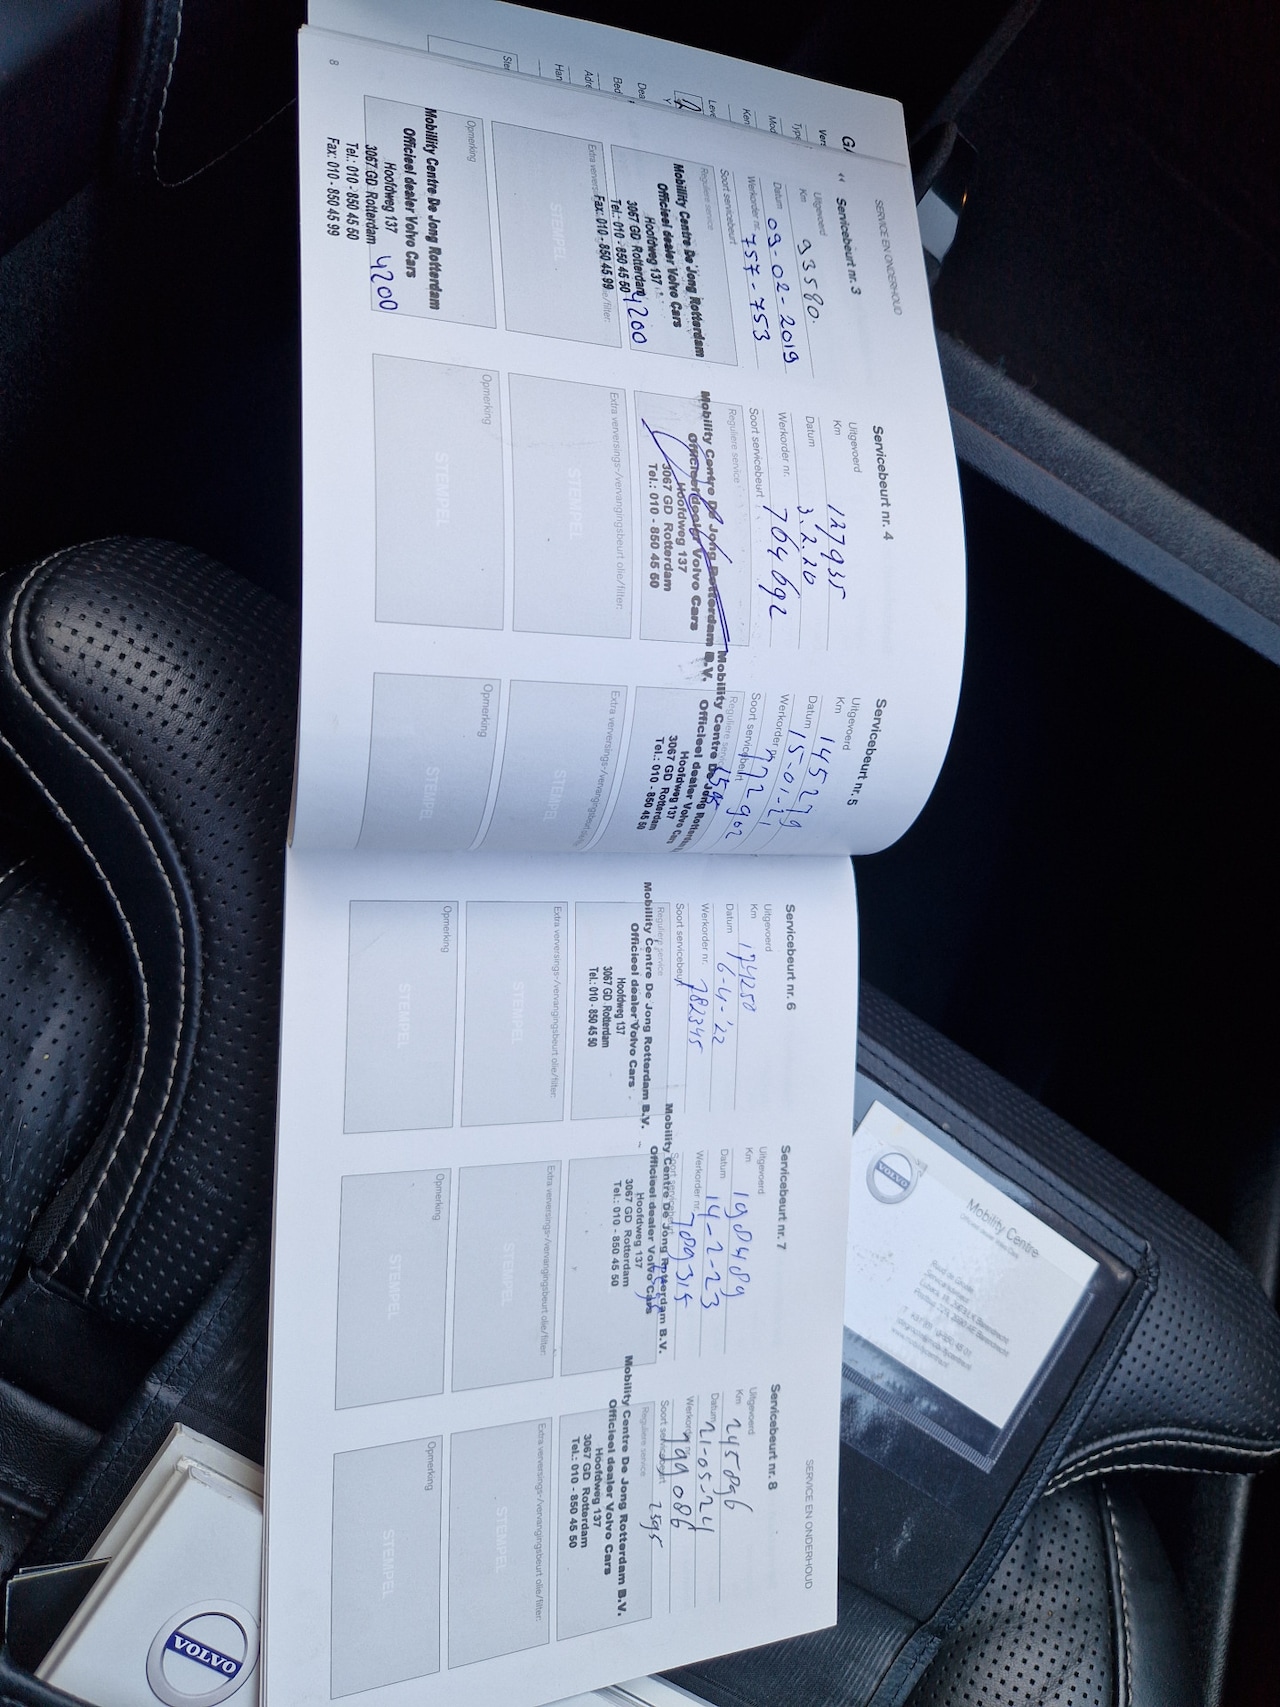 SERVICE EN ONDERHOUD
«
Servicebeurt nr. 3
Uitgevoerd
Km 93580.
Datum 09-02-2019
Werkorder nr. 757-753
Soort servicebeurt
Reguliere service
Mobillity Centre De Jong Rotterdam
Officieel dealer Volvo Cars
Hoofdweg 137
3067 GD Rotterdam
Tel.: 010 - 850 45 50
Fax: 010 - 850 45 99
4200
STEMPEL
Opmerking
Mobillity Centre De Jong Rotterdam
Officieel dealer Volvo Cars
Hoofdweg 137
3067 GD Rotterdam
Tel.: 010 - 850 45 50
Fax: 010 - 850 45 99
4200
8
Servicebeurt nr. 4
Uitgevoerd
Km 127935
Datum 3.2.20
Werkorder nr. 764692
Soort servicebeurt
Reguliere service
Mobility Centre De Jong Rotterdam B.V.
Officieel dealer Volvo Cars
Hoofdweg 137
3067 GD Rotterdam
Tel.: 010 - 850 45 50
Extra verversings-/vervangingsbeurt olie/filter:
STEMPEL
Opmerking
STEMPEL
Servicebeurt nr. 5
Uitgevoerd
Km 145279
Datum 15-01-21
Werkorder nr. 772902
Soort servicebeurt
Reguliere service
Mobility Centre De Jong
Officieel dealer Volvo
Hoofdweg 137
3067 GD Rotterdam
Tel.: 010 - 850 45 50
Extra verversings-/vervangingsbeurt
STEMPEL
Opmerking
STEMPEL
Servicebeurt nr. 6
Uitgevoerd
Km 174250
Datum 6-4-'22
Werkorder nr. 782345
Soort servicebeurt
Reguliere service
Mobillity Centre De Jong Rotterdam B.V.
Officieel dealer Volvo Cars
Hoofdweg 137
3067 GD Rotterdam
Tel.: 010 - 850 45 50
Extra verversings-/vervangingsbeurt olie/filter:
STEMPEL
Opmerking
STEMPEL
Servicebeurt nr. 7
Uitgevoerd
Km 198489
Datum 14-2-23
Werkorder nr. 789315
Soort servicebeurt
Mobility Centre De Jong Rotterdam B.V.
Officieel dealer Volvo Cars
Hoofdweg 137
3067 GD Rotterdam
Tel.: 010 - 850 45 50
Extra verversings-/vervangingsbeurt olie/filter:
STEMPEL
Opmerking
STEMPEL
SERVICE EN ONDERHOUD
Servicebeurt nr. 8
Uitgevoerd
Km 245896
Datum 21-05-24
Werkorder nr. 799086
Soort servicebeurt 2595
Reguliere service
Mobility Centre De Jong Rotterdam B.V.
Officieel dealer Volvo Cars
Hoofdweg 137
3067 GD Rotterdam
Tel.: 010 - 850 45 50
Extra verversings-/vervangingsbeurt olie/filter:
STEMPEL
Opmerking
STEMPEL
VOLVO
Mobility Centre
VOLVO